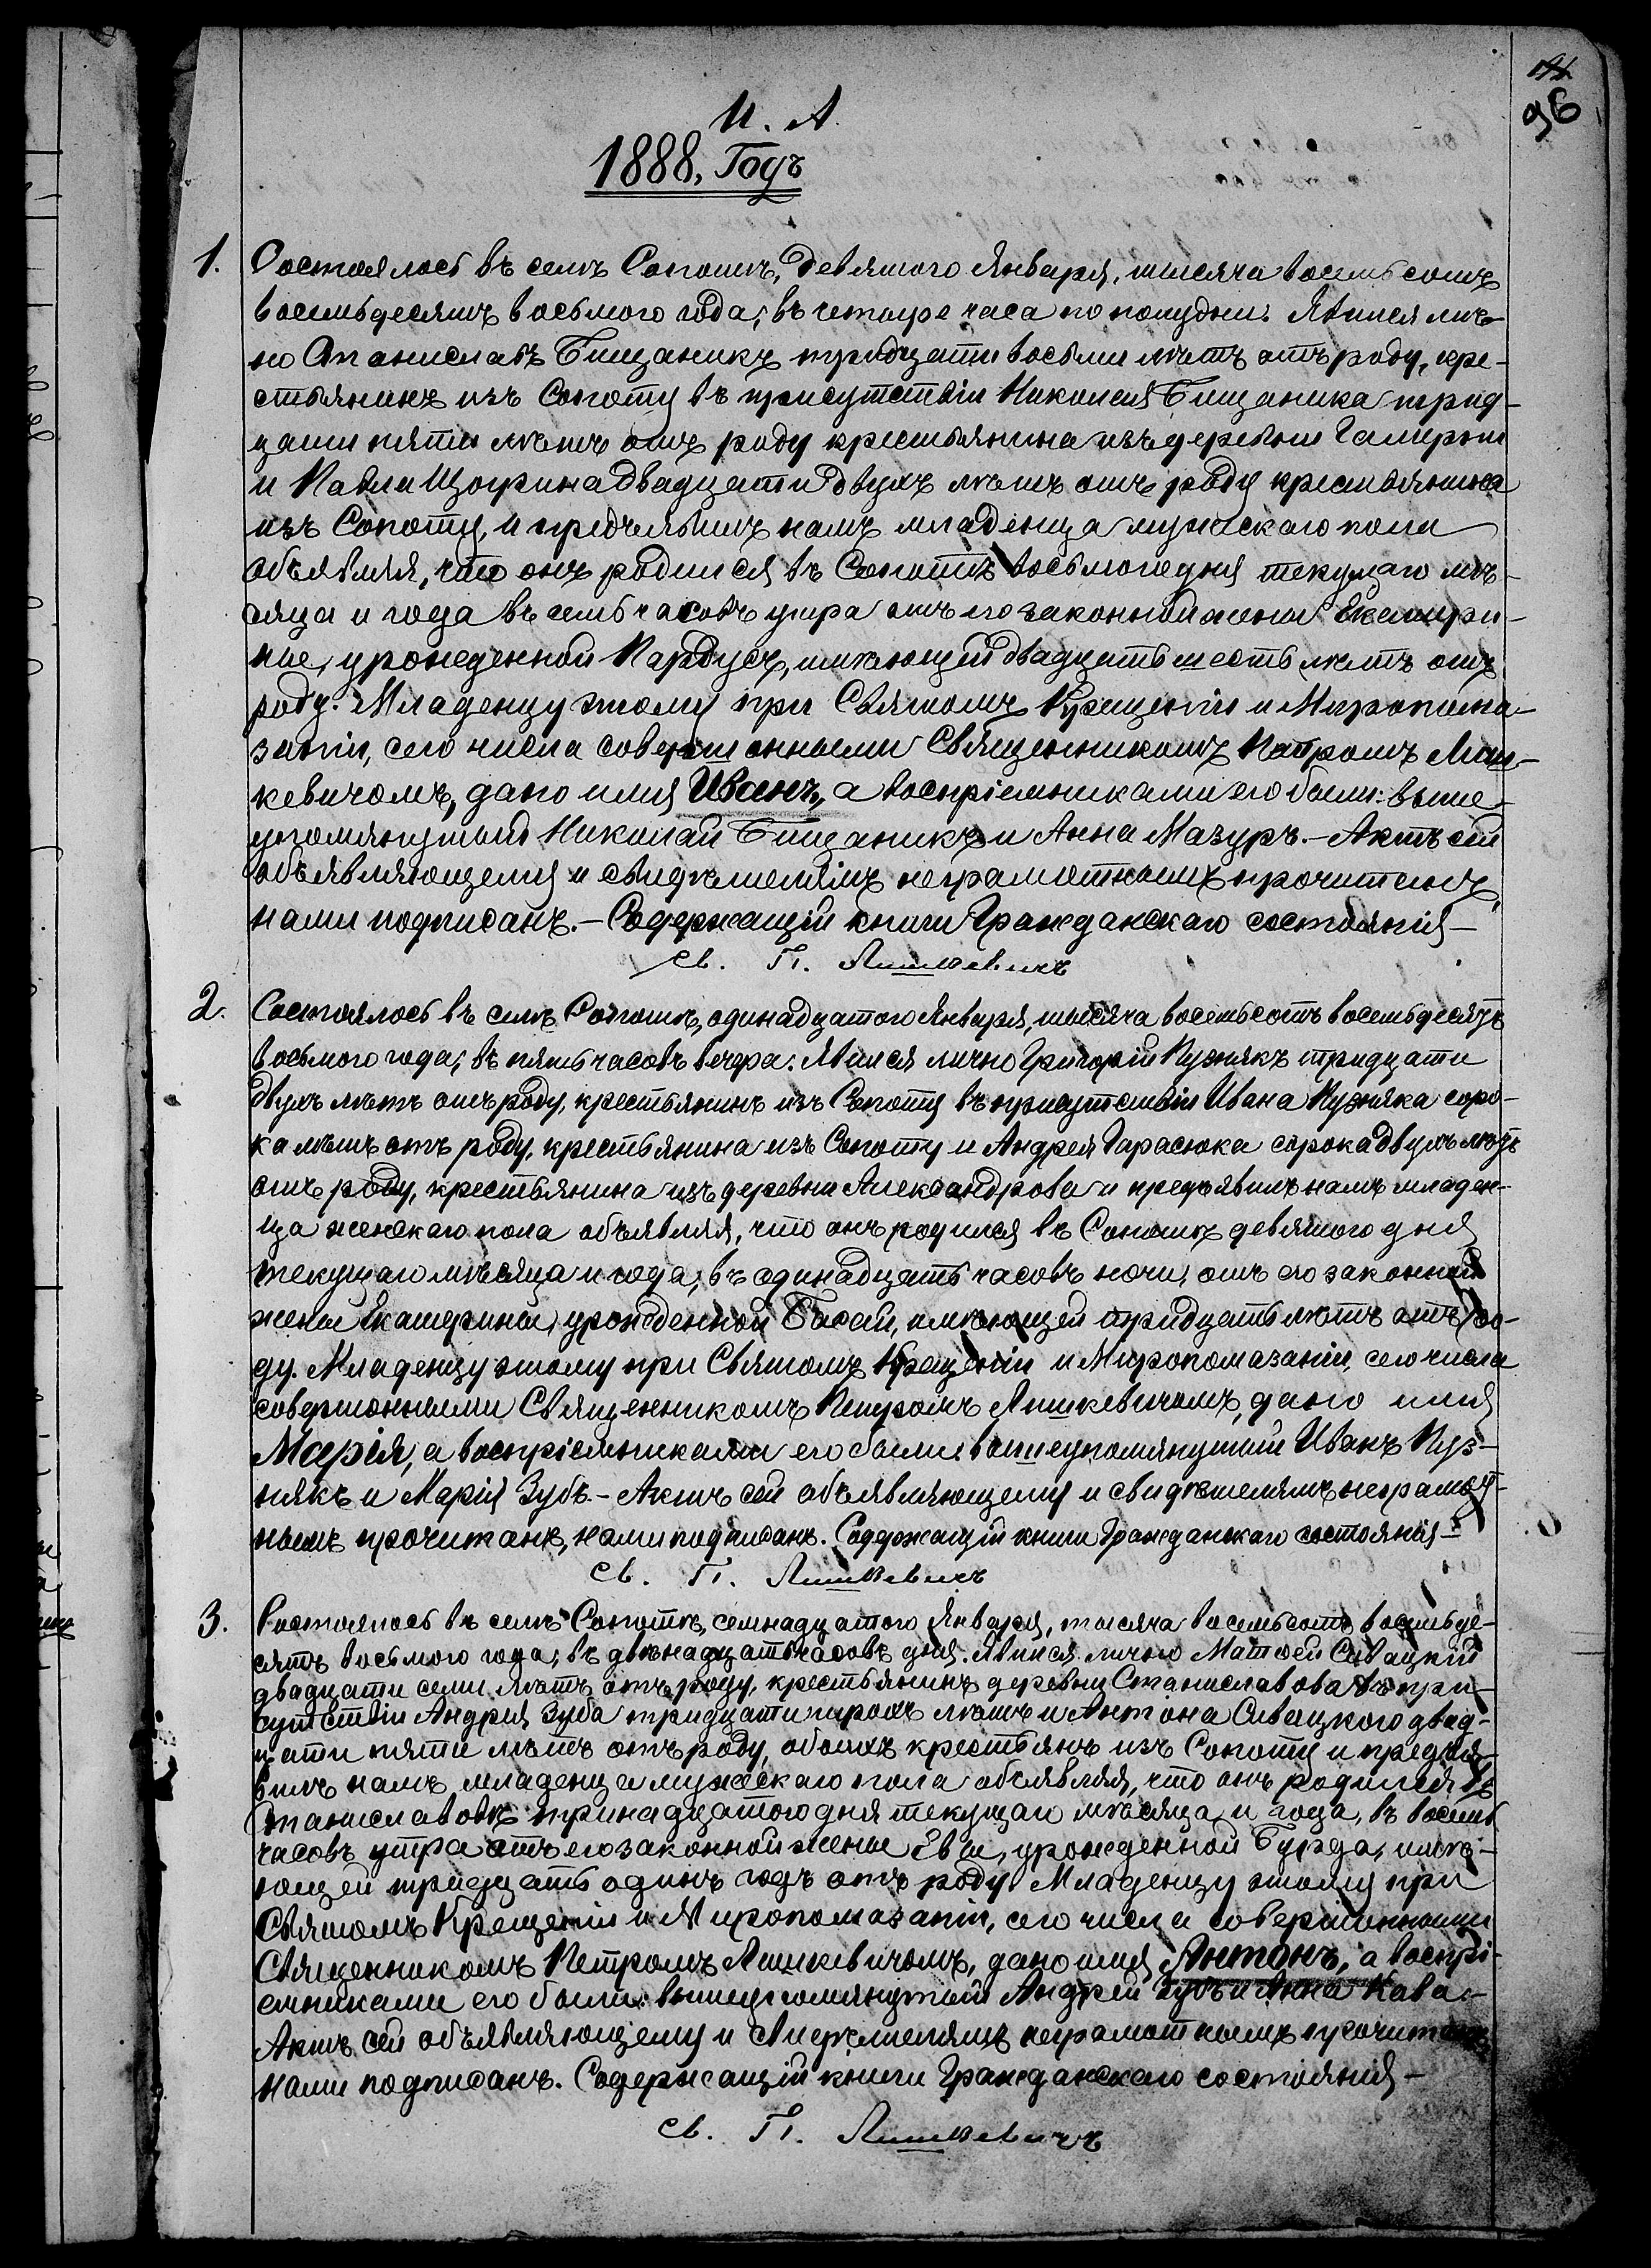 96
И. А.
1888. Годъ
1. Состоялось въ селѣ Сопотѣ, девятого Января, тысяча восемьсотъ
восемьдесятъ восьмого года; въ четыре часа по полудни. Явился лич-
но Станиславъ Бищаникъ тридцати восьми лѣтъ отъ роду, кре-
стьянинъ изъ Сопоту въ присутствіи Николая Бищаника трид-
цати пяти лѣтъ отъ роду крестьянина изъ деревни
и Павла двадцати двухъ лѣтъ отъ роду крестьянина
изъ Сопоту, и предъявилъ намъ младенца мужескаго пола
объявляя, что онъ родился въ Сопотѣ восьмого дня текущаго мѣ-
сяца и года въ семь часовъ утра отъ его законной жены Екатери-
ны, урожденной Пардусъ, имѣющей двадцать шесть лѣтъ отъ
роду. Младенцу этому при Святомъ Крещеніи и Миропома-
заніи, сего числа совершонными Священникомъ Петромъ Ляш-
кевичомъ, дано имя Иванъ, а воспріемниками его были: выше-
упомянутый Николай Бищаникъ и Анна Мазуръ. – Актъ сей
объявляющему и свидѣтелямъ неграмотнымъ прочитанъ,
нами подписанъ. – Содержащій книги Гражданскаго состоянія –
Св. П. Ляшкевичъ
2. Состоялось въ селѣ Сопотѣ, одинадцатого Января, тысяча восемьсотъ восемьдесятъ
восьмого года; въ пять часовъ вечера. Явился лично Григорій Пузнякъ тридцати
двухъ лѣтъ отъ роду, крестьянинъ изъ Сопоту въ присутствіи Ивана Пузняка соро-
ка лѣтъ отъ роду, крестьянина изъ Сопоту и Андрея Тарасюка сорока двухъ лѣтъ
отъ роду, крестьянина изъ деревни Александрова и предъявилъ намъ младен-
ца женскаго пола объявляя, что онъ родился въ Сопотѣ девятого дня
текущаго мѣсяца и года, въ одинадцать часовъ ночи, отъ его законной
жены Екатерины, урожденной Басай, имѣющей тридцать лѣтъ отъ ро-
ду. Младенцу этому при Святомъ Крещеніи и Миропомазаніи, сего числа
совершонными Священникомъ Петромъ Ляшкевичомъ, дано имя
Марія, а воспріемниками его были: вышеупомянутый Иванъ Пуз-
някъ и Марія Зубъ. – Актъ сей объявляющему и свидѣтелямъ неграмот-
нымъ прочитанъ, нами подписанъ. Содержащій книги Гражданскаго состоянія –
Св. П. Ляшкевичъ
3. Состоялось въ селѣ Сопотѣ, семнадцатого Января, тысяча восемьсотъ восемьде-
сятъ восьмого года; въ двѣнадцать часовъ дня. Явился лично Матѳей Сивацкій
двадцати семи лѣтъ отъ роду, крестьянинъ деревни Станиславова въ при-
сутствіи Андрея Зуба тридцати трохъ лѣтъ и Антона Сивацкого двад-
цати пяти лѣтъ отъ роду, обоихъ крестьянъ изъ Сопоту и предъя-
вилъ намъ младенца мужескаго пола объявляя, что онъ родился въ
Станиславовѣ тринадцатого дня текущаго мѣсяца и года, въ восемь
часовъ утра отъ его законной жены Евы, урожденной Бурда, имѣ-
ющей тридцать одинъ годъ отъ роду. Младенцу этому при
Святомъ Крещеніи и Миропомазаніи, сего числа совершонными
Священникомъ Петромъ Ляшкевичомъ, дано имя Антонъ, а воспрі-
емниками его были: вышеупомянутый Андрей Зубъ и Анна Кава. –
Актъ сей объявляющему и свидѣтелямъ неграмотнымъ прочитанъ
нами подписанъ. Содержащій книги Гражданскаго состоянія –
Св. П. Ляшкевичъ